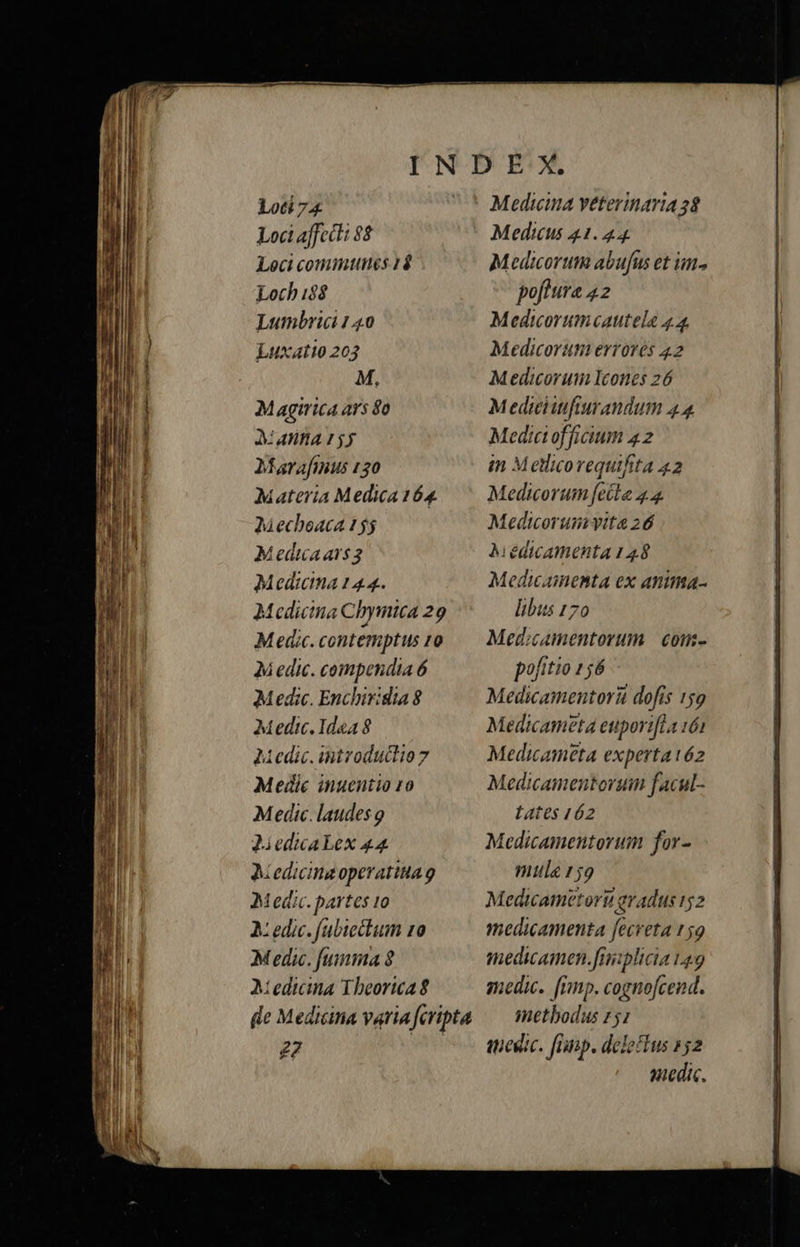 INDEX.
Loti 74
Loci affecti 88
Loci communes 18
Loch 188
Lumbrici 140
Luxatio 203
M,
Magirica ars 80
Manna 155
Marasmus 130
Materia Medica 164
Mechoaca 155
Medica ars 3
Medicina 144.
Medicina Chymica 29
Medic. contemptus 10
Medic. compendia 6
Medic. Enchiridia 8
Medic. Idæa 8
Medic. introductio 7
Medic inuentio 10
Medic. laudes 9
Medica Lex 44
Medicina operatiua 9
Medic. partes 10
Medic. ſubiectum 10
Medic. ſumma 8
Medicina Theorica 8
de Medicina varia ſcripta
27
Medicina veterinaria 38
Medicus 41. 44
Medicorum abuſus et im-
poſturæ 42
Medicorum cautelæ 44
Medicorum errores 42
Medicorum Icones 26
Medici iuſiurandum 44
Medici officium 42
in Medico requiſita 42
Medicorum ſectæ 44
Medicorum vitæ 26
Medicamenta 148
Medicamenta ex anima-
libus 170
Medicamentorum com-
poſitio 156
Medicamentorū doſis 159
Medicamēta euporiſta 161
Medicamēta experta 162
Medicamentorum facul-
tates 162
Medicamentorum for-
mulæ 159
Medicamētorū gradus 152
medicamenta ſecreta 159
medicamen. ſimplicia 149
medic. ſimp. cognoſcend.
methodus 151
medic. ſimp. delectus 152
medic.